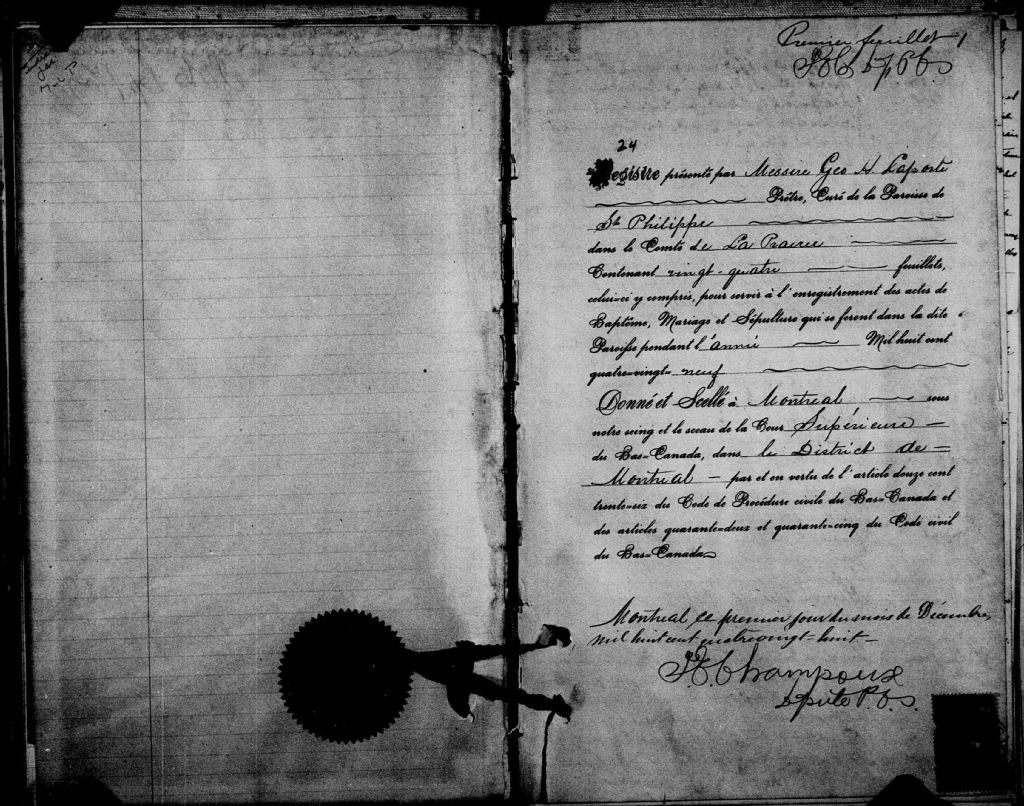 Premier feuillet 1
24
Registre présenté par Messire Geo H Laporte
Prêtre, Curé de la Paroisse de
St Philippe
dans le Comté de La Prairie
Contenant vingt-quatre feuillets,
celui-ci y compris, pour servir à l'enregistrement des actes de
Baptême, Mariage et Sépulture qui se feront dans la dite
Paroisse pendant l'année Mil huit cent
quatre-vingt-neuf
Donné et Scellé à Montreal sous
notre seing et le sceau de la Cour Supérieure
du Bas-Canada, dans le District de
Montreal par et en vertu de l'article douze cent
trente-six du Code de Procédure civile du Bas-Canada et
des articles quarante-deux et quarante-cinq du Code civil
du Bas-Canada
Montreal ce premier jour du mois de Décembre,
mil huit cent quatrevingt-huit.
Champoux
Député P. O. S.